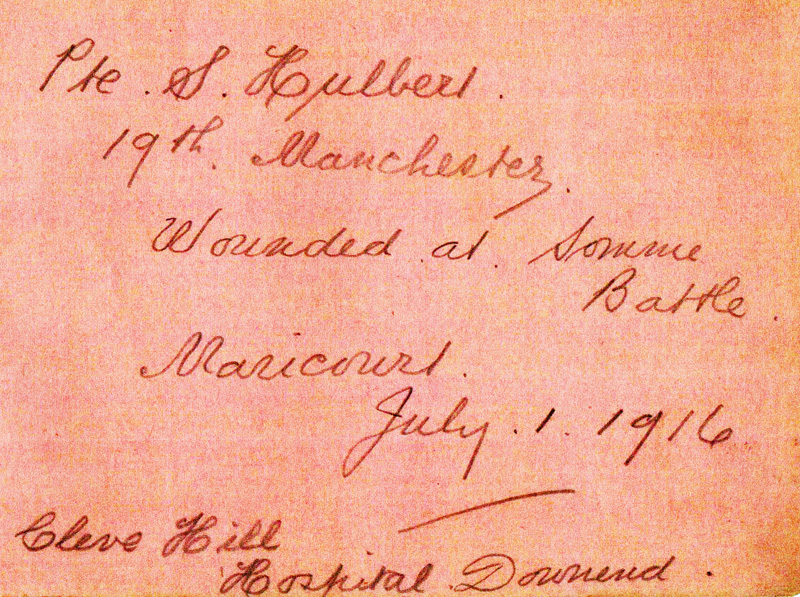 Pte. S. Hulbert.
19th. Manchester.
Wounded at Somme
Battle.
Maricourt.
July. 1. 1916
Cleve Hill
Hospital Downend.